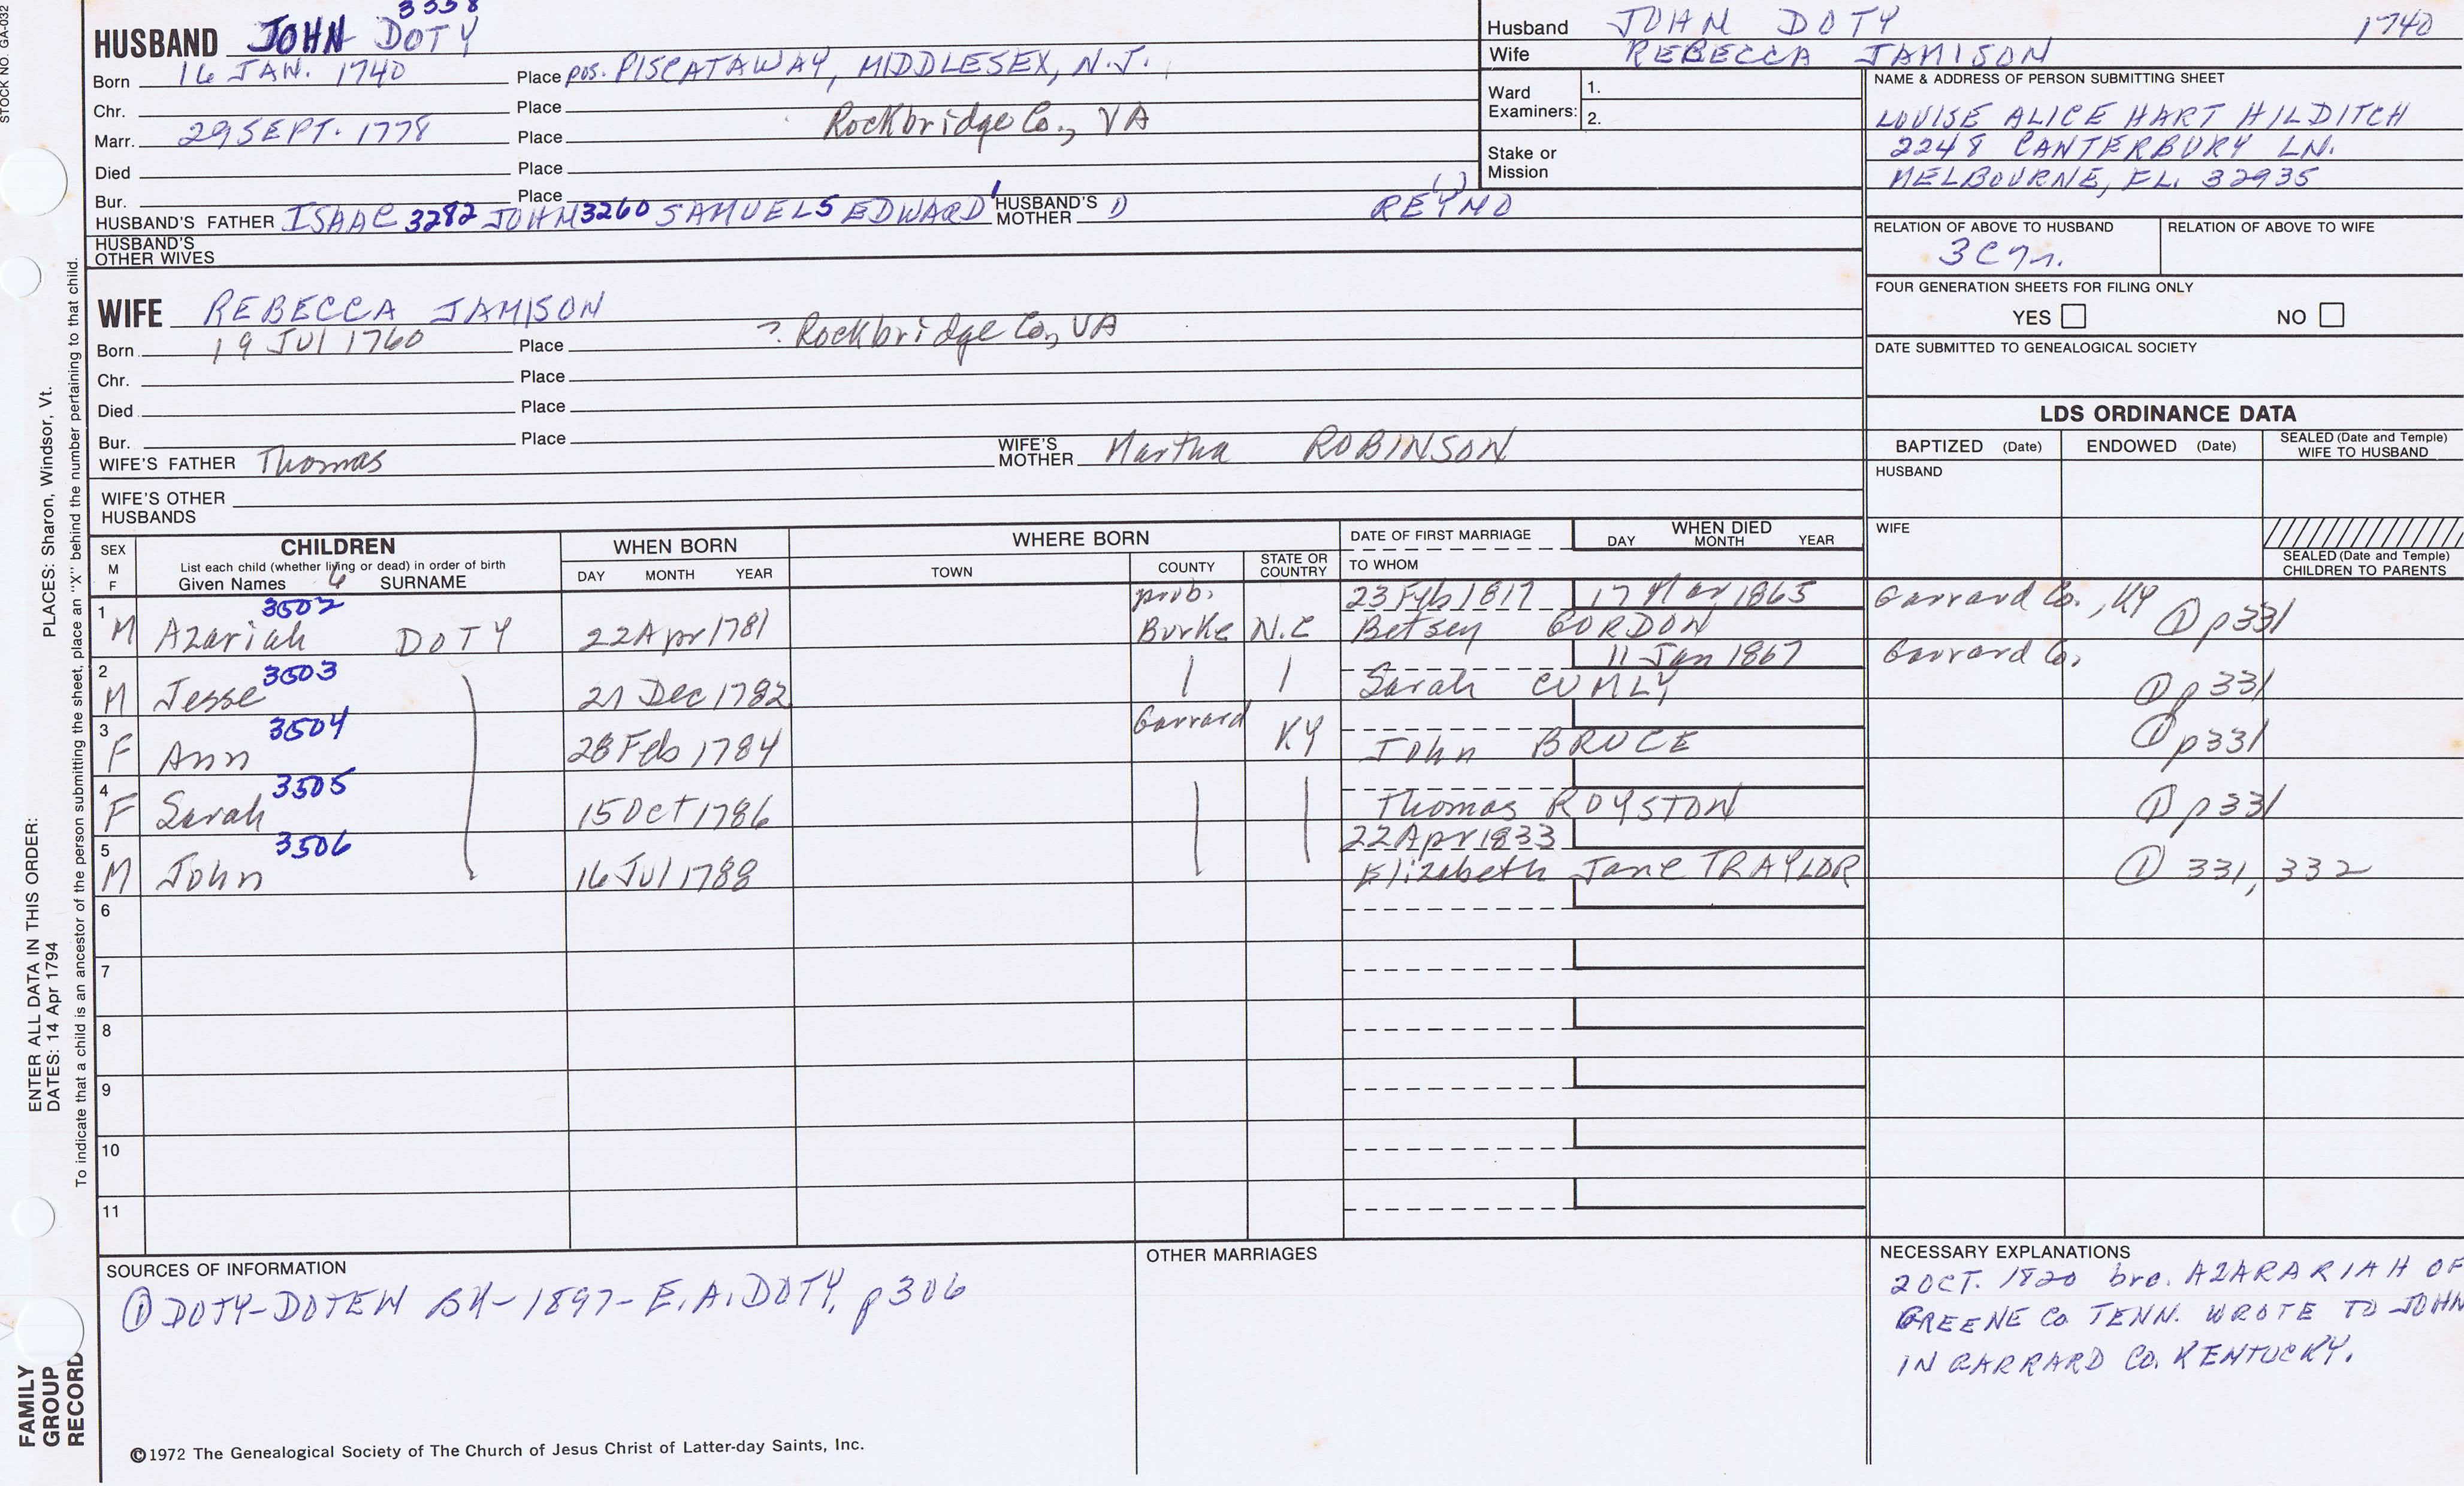 STOCK NO. GA-032
3338
HUSBAND JOHN DOTY
Born 16 JAN. 1740 Place pos. PISCATAWAY, MIDDLESEX, N.J.
Chr. Place
Marr. 29 SEPT. 1778 Place Rockbridge Co., VA
Died Place
Bur. Place
HUSBAND'S FATHER ISAAC 3282 JOHN 3260 SAMUEL 5 EDWARD 1 HUSBAND'S MOTHER
HUSBAND'S OTHER WIVES
Husband JOHN DOTY 1740
Wife REBECCA JAMISON
Ward Examiners: 1.
2.
Stake or Mission
NAME & ADDRESS OF PERSON SUBMITTING SHEET
LOUISE ALICE HART HILDITCH
2248 CANTERBURY LN.
MELBOURNE, FL. 32935
RELATION OF ABOVE TO HUSBAND
RELATION OF ABOVE TO WIFE
FOUR GENERATION SHEETS FOR FILING ONLY
YES NO
DATE SUBMITTED TO GENEALOGICAL SOCIETY
WIFE REBECCA JAMISON
Born 19 JUl 1760 Place ? Rockbridge Co., VA
Chr. Place
Died Place
Bur. Place
WIFE'S FATHER Thomas WIFE'S MOTHER Martha ROBINSON
WIFE'S OTHER HUSBANDS
LDS ORDINANCE DATA
BAPTIZED (Date) ENDOWED (Date) SEALED (Date and Temple) WIFE TO HUSBAND
HUSBAND
WIFE
SEALED (Date and Temple) CHILDREN TO PARENTS
SEX M F
CHILDREN
List each child (whether living or dead) in order of birth
Given Names SURNAME
WHEN BORN
DAY MONTH YEAR
WHERE BORN
TOWN COUNTY STATE OR COUNTRY
DATE OF FIRST MARRIAGE
TO WHOM
WHEN DIED
DAY MONTH YEAR
3502 prob. 23 Feb 1817 17 Mar 1865 Garrard Co., KY
1 M Azariah DOTY 22 Apr 1781 Burke N.C Betsey GORDON ① p331
3503 11 Jan 1867 Garrard Co.
2 M Jesse 21 Dec 1782 Sarah CUMLY ① p331
3504 Garrard
3 F Ann 28 Feb 1784 KY John BRUCE ① p331
3505
4 F Sarah 15 Oct 1786 Thomas ROYSTON ① p331
3506 22 Apr 1833
5 M John 16 Jul 1788 Elizabeth Jane TRAYLOR ① 331, 332
6
7
8
9
10
11
SOURCES OF INFORMATION
① DOTY-DOTEN BK-1897-E.A. DOTY, p306
OTHER MARRIAGES
NECESSARY EXPLANATIONS
2 OCT. 1820 bro. AZARARIAH OF
GREENE CO. TENN. WROTE TO JOHN
IN GARRARD CO. KENTUCKY.
©1972 The Genealogical Society of The Church of Jesus Christ of Latter-day Saints, Inc.
FAMILY
GROUP
RECORD
ENTER ALL DATA IN THIS ORDER:
DATES: 14 Apr 1794 PLACES: Sharon, Windsor, Vt.
To indicate that a child is an ancestor of the person submitting the sheet, place an "X" behind the number pertaining to that child.